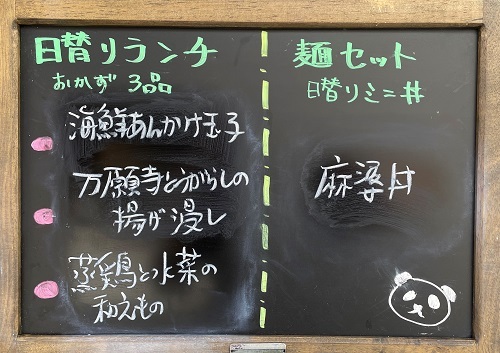 日替りランチ
おかず 3品
海鮮あんかけ玉子
万願寺とがらしの
揚げ浸し
蒸鶏と水菜の
和えもの
麺セット
日替りミニ丼
麻婆丼